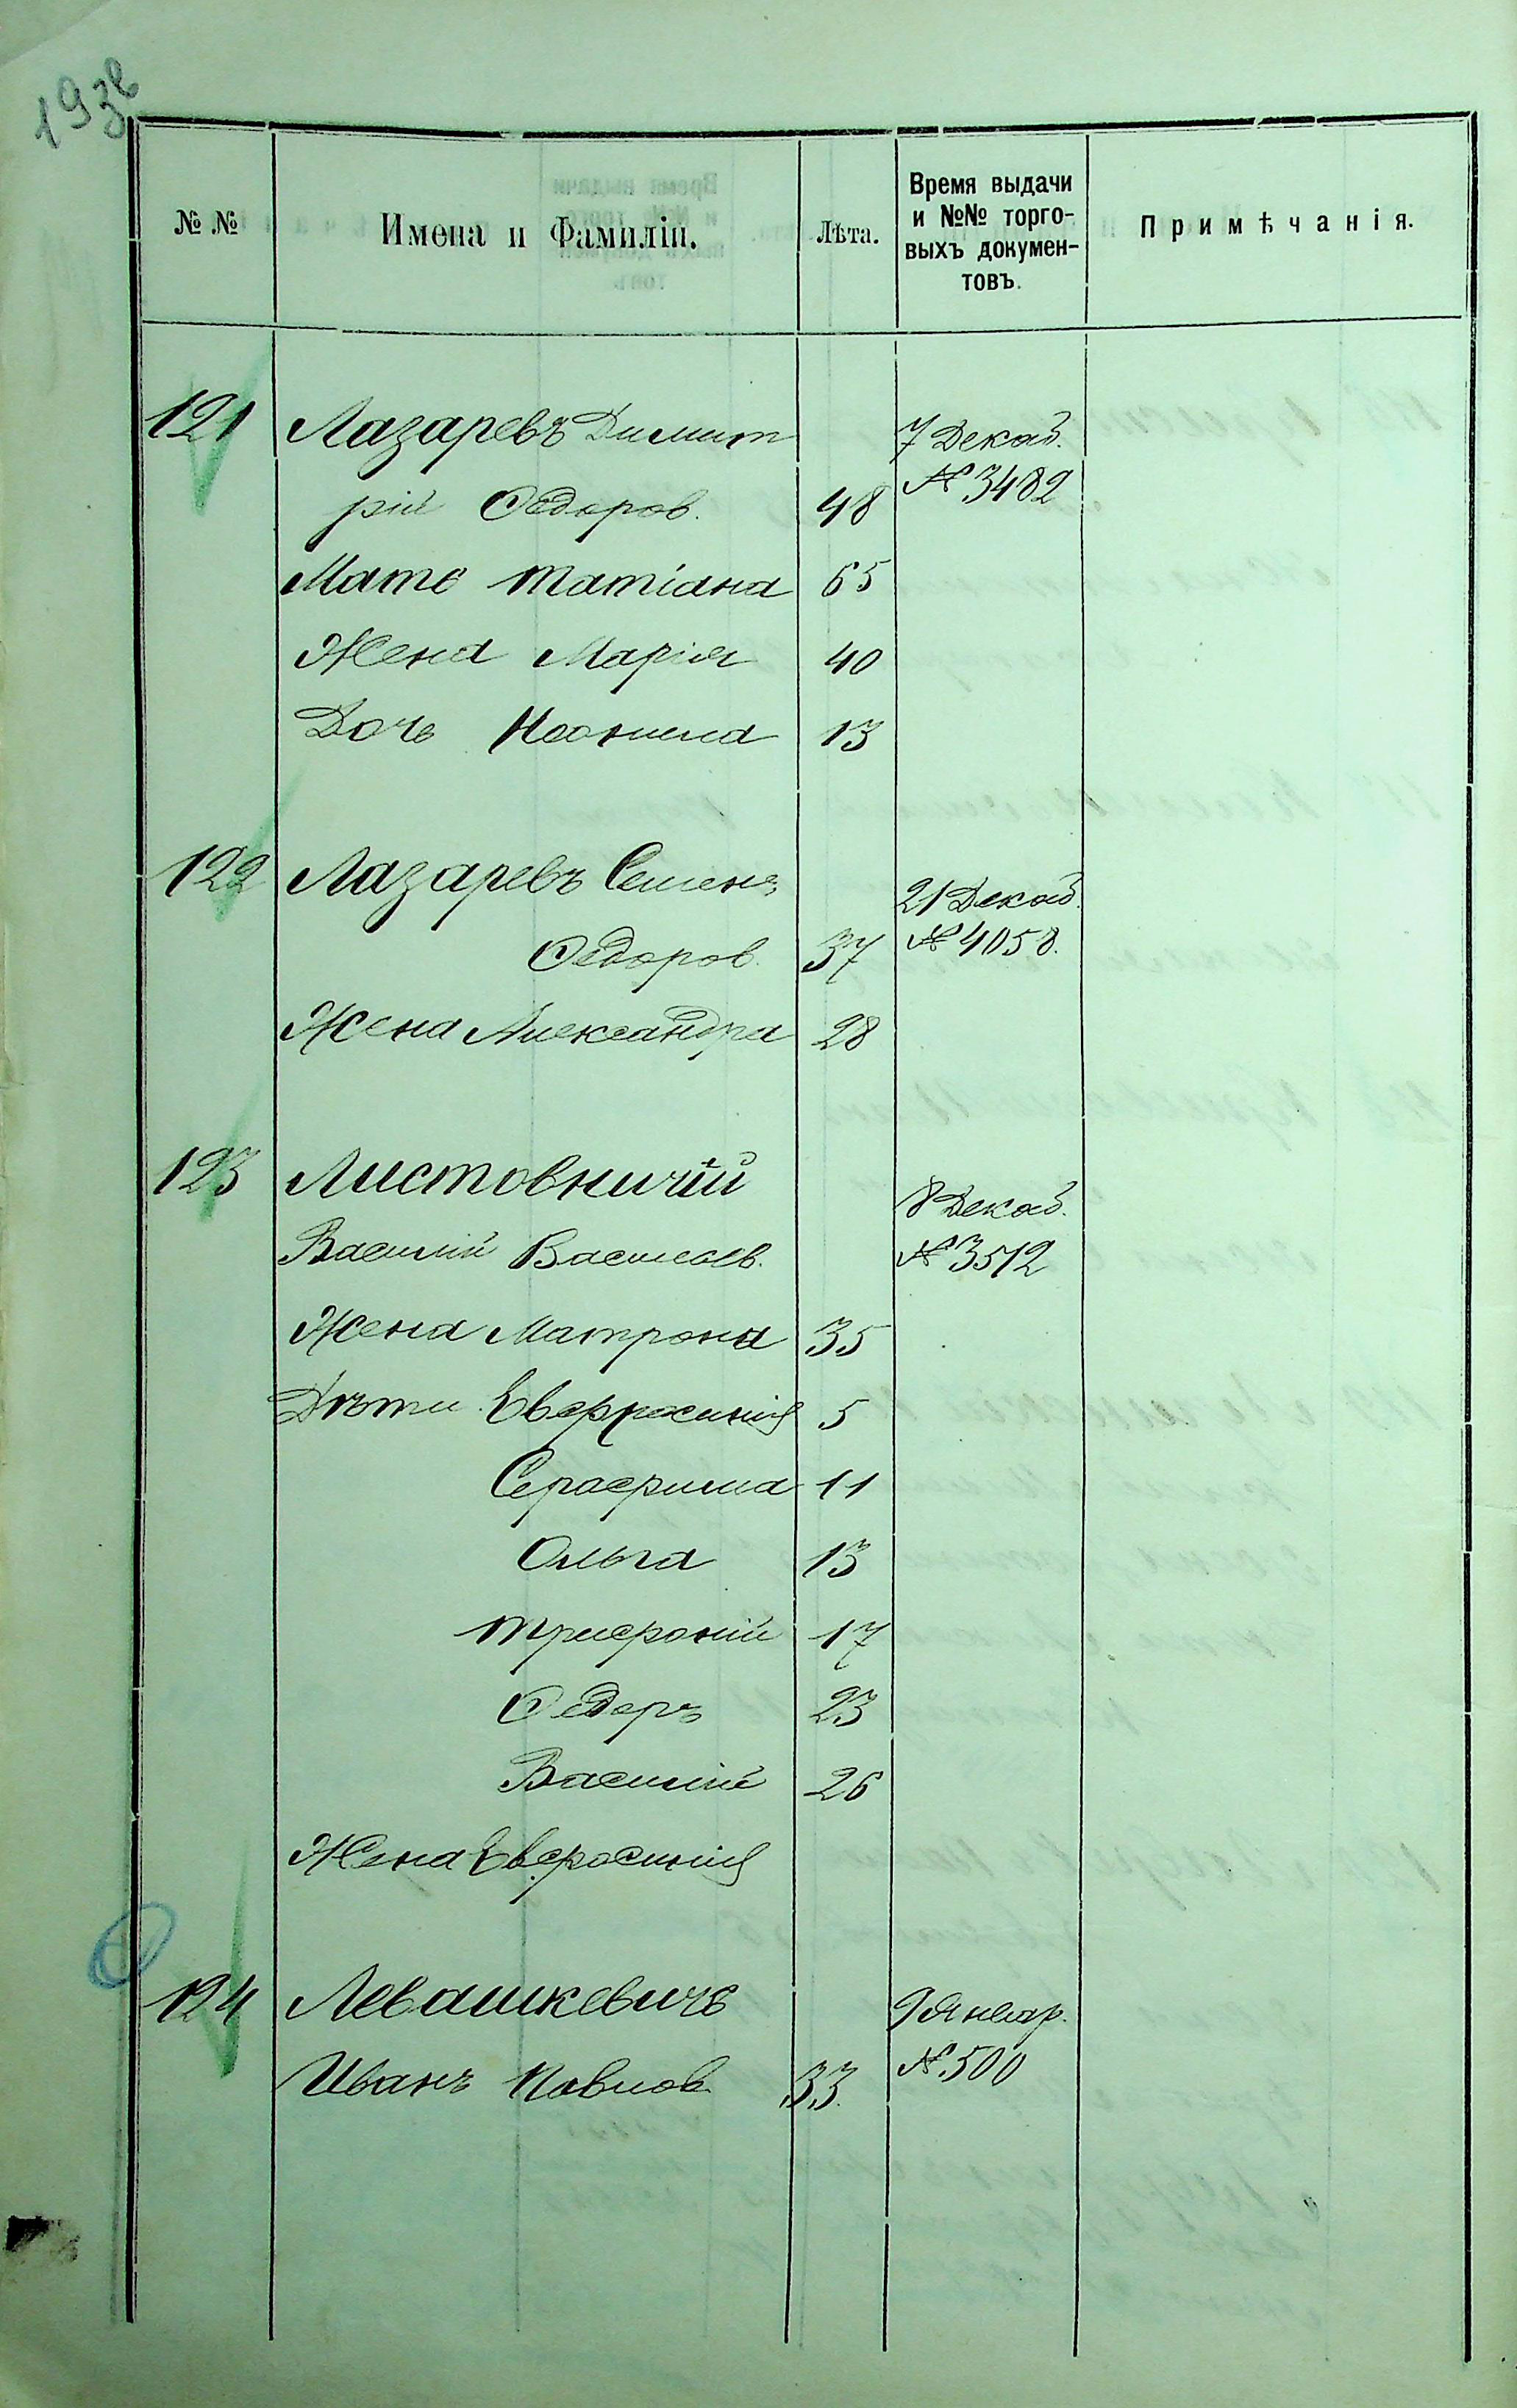 193
№ №
Имена и Фамиліи.
Лѣта.
Время выдачи
и №№ торго-
выхъ докумен-
товъ.
Примѣчанія.
121 Лазаревъ Димит 7 Декаб.
рій Федоров. 48 № 3482
Мать Татіана 65
Жена Марія 40
Дочь Неонила 13
122 Лазаревъ Семенъ 21 Декаб.
Федоров. 37 № 4058.
Жена Александра 28
123 Листовничій 8 Декаб.
Василій Васильев. № 3512
Жена Матрона 35
Дѣти Евфросинія 5
Серафима 11
Ольга 13
Трифоній 17
Федоръ 23
Василій 26
Жена Евфросинія
124 Левашкевичъ 9 Январ.
Иванъ Павлов. 33. № 500